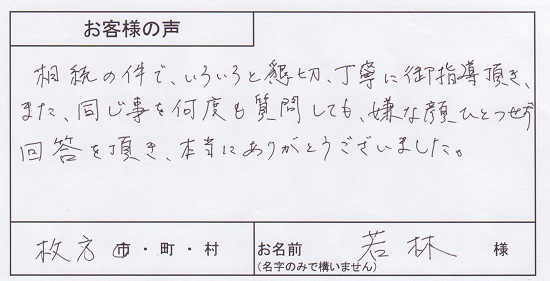 お客様の声
相続の件で、いろいろと懇切、丁寧に御指導頂き、
また、同じ事を何度も質問しても、嫌な顔ひとつせず
回答を頂き、本当にありがとうございました。
枚方 市・町・村 お名前 若林 様
(名字のみで構いません)